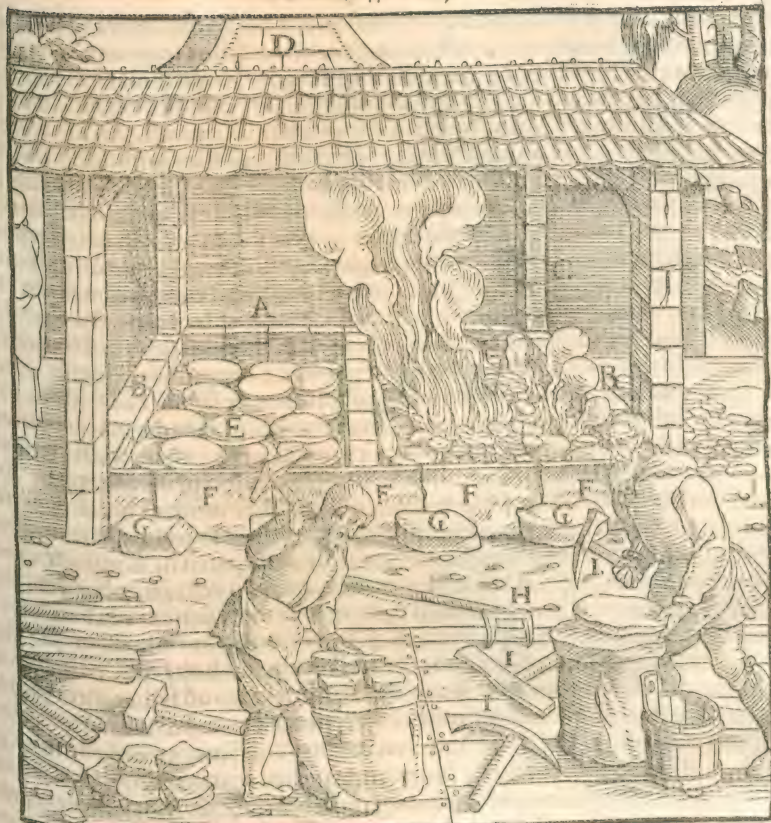 D
A
B
B
E
F
F
F
F
G
G
G
I
H
I
I